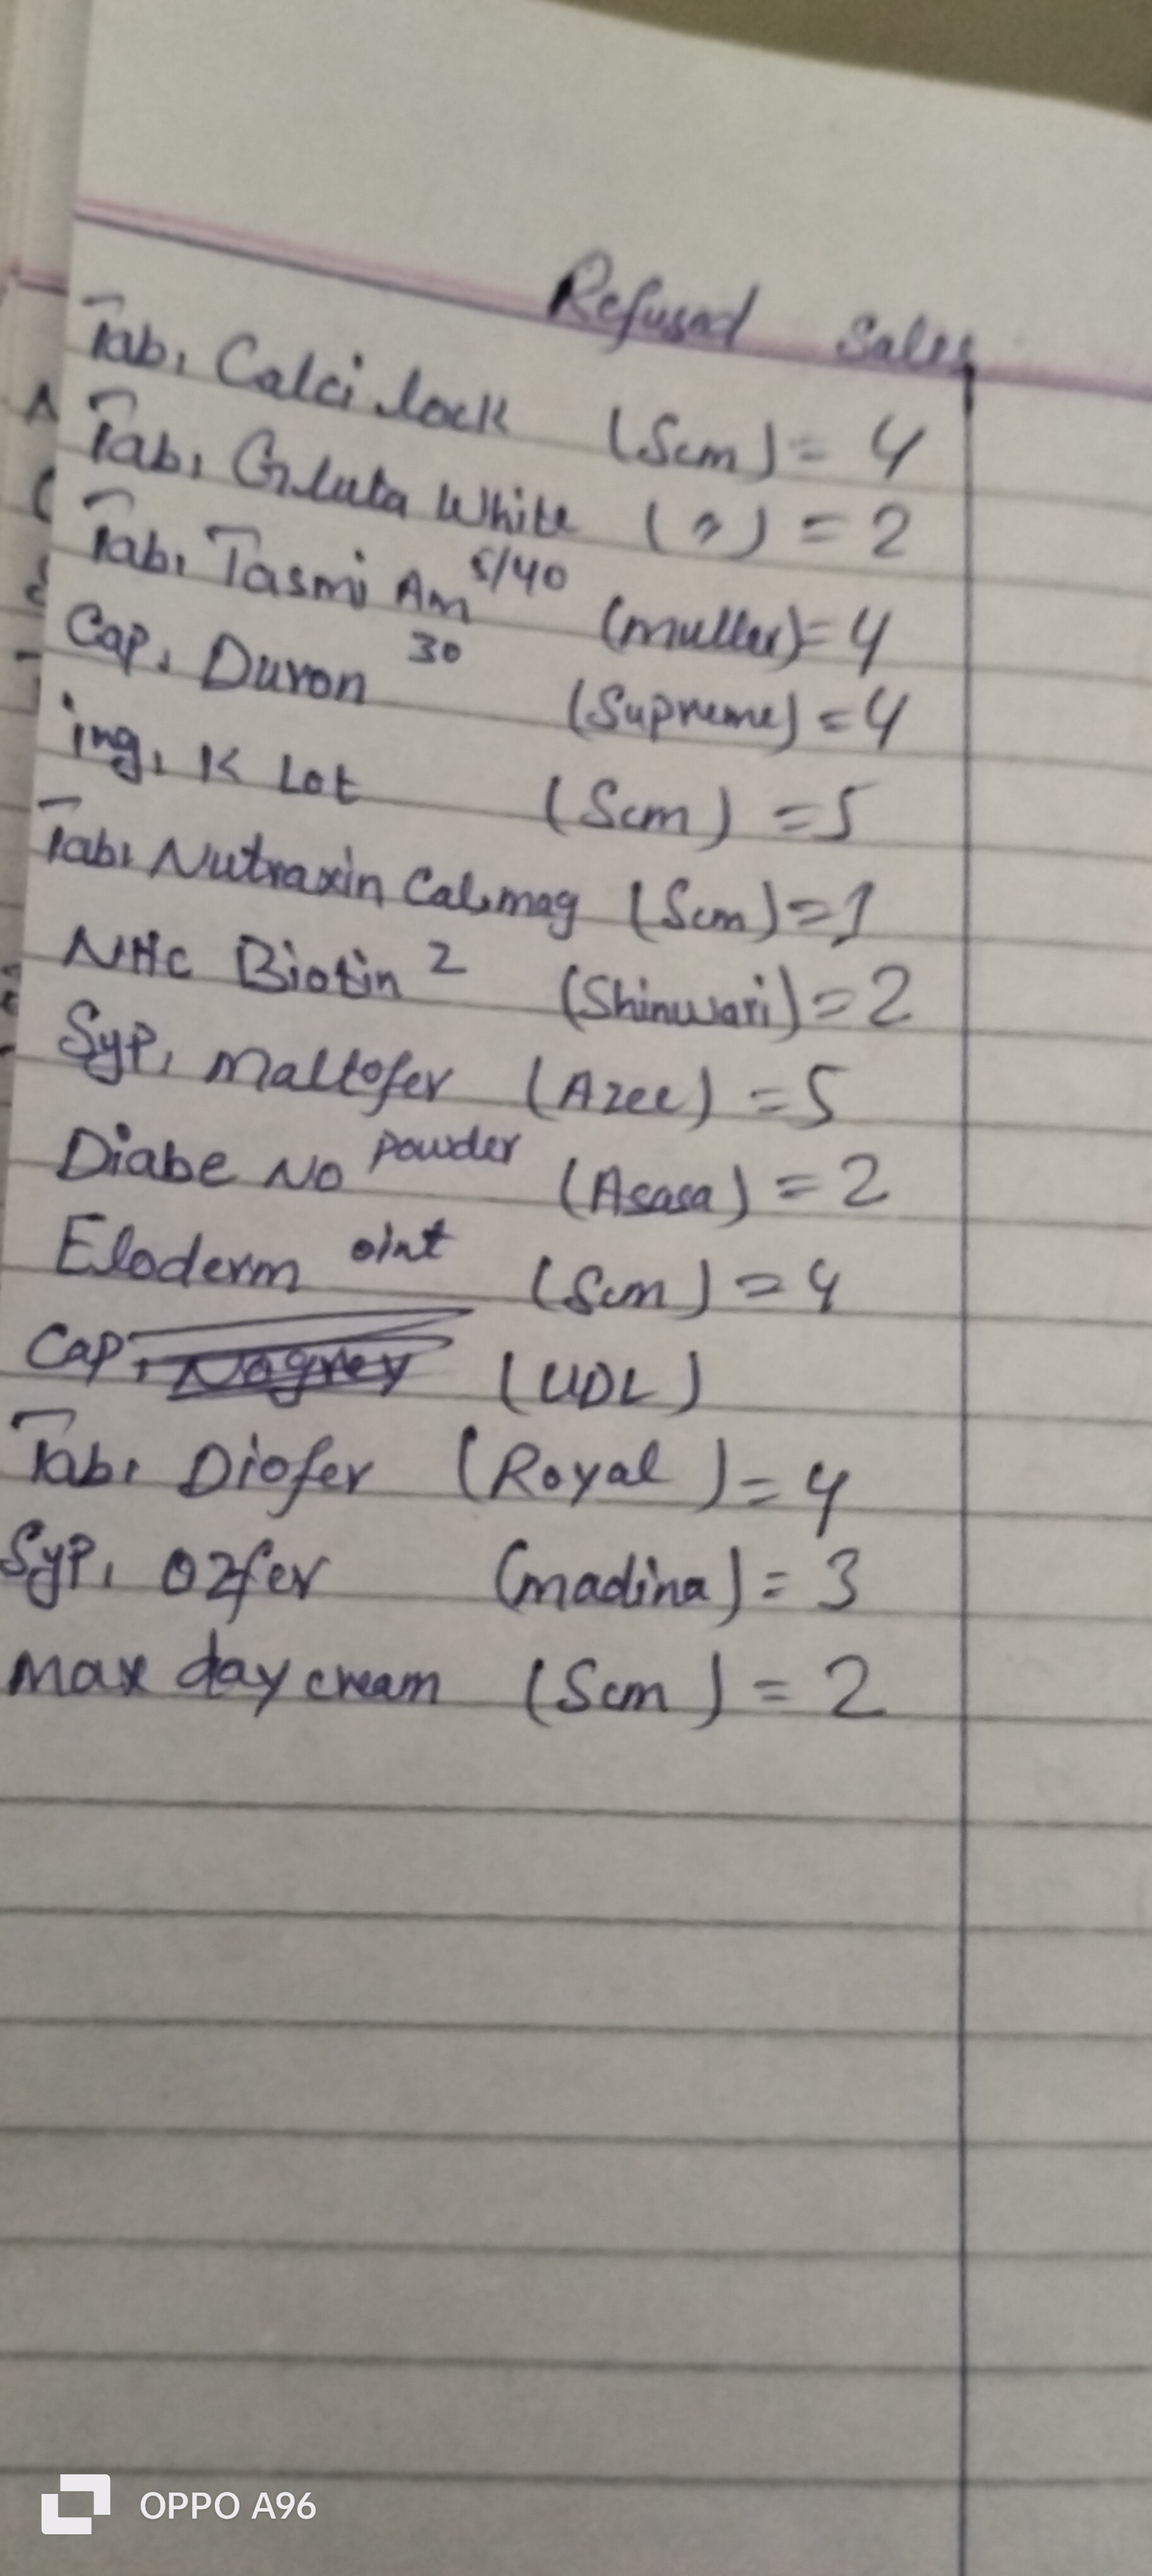 Refused Sales
Tab, Calci lock (Scm) = 4
Tab, Gluta White ( " ) = 2
Tab, Tasmi Am 5/40 (muller) = 4
Cap, Duron 30 (Supreme) = 4
ing, K Lot (Scm) = 5
Tab, Nutraxin Cal.mag (Scm) = 1
NHc Biotin 2 (Shinwari) = 2
Syp, Maltofer (Azee) = 5
Diabe No powder (Asasa) = 2
Eloderm oint (Scm) = 4
Cap, Nogrey (UDL)
Tab, Diofer (Royal) = 4
Syp, Ozfer (madina) = 3
Max day cream (Scm) = 2
OPPO A96